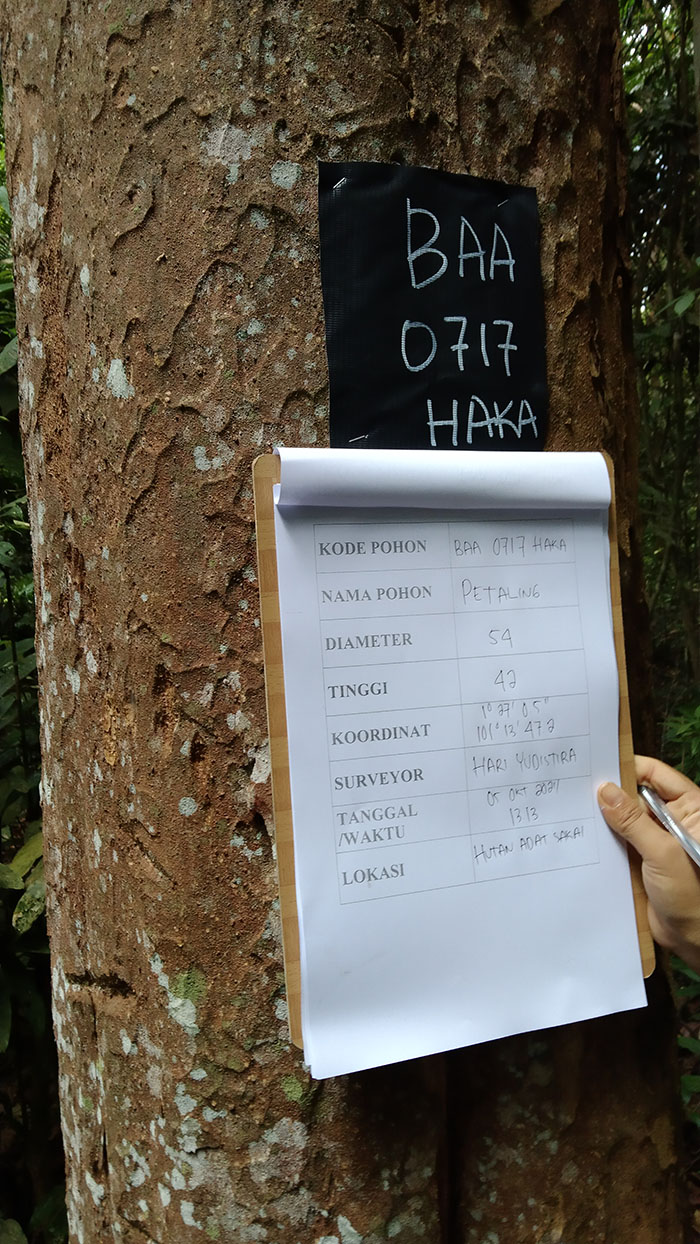 BAA
0717
HAKA
KODE POHON BAA 0717 HAKA
NAMA POHON PETALING
DIAMETER 54
TINGGI 42
KOORDINAT 1° 27' 0 5"
101° 13' 47 2
SURVEYOR HARI YUDISTIRA
TANGGAL 05 OKT 2024
/WAKTU 13 13
LOKASI HUTAN ADAT SAKAI